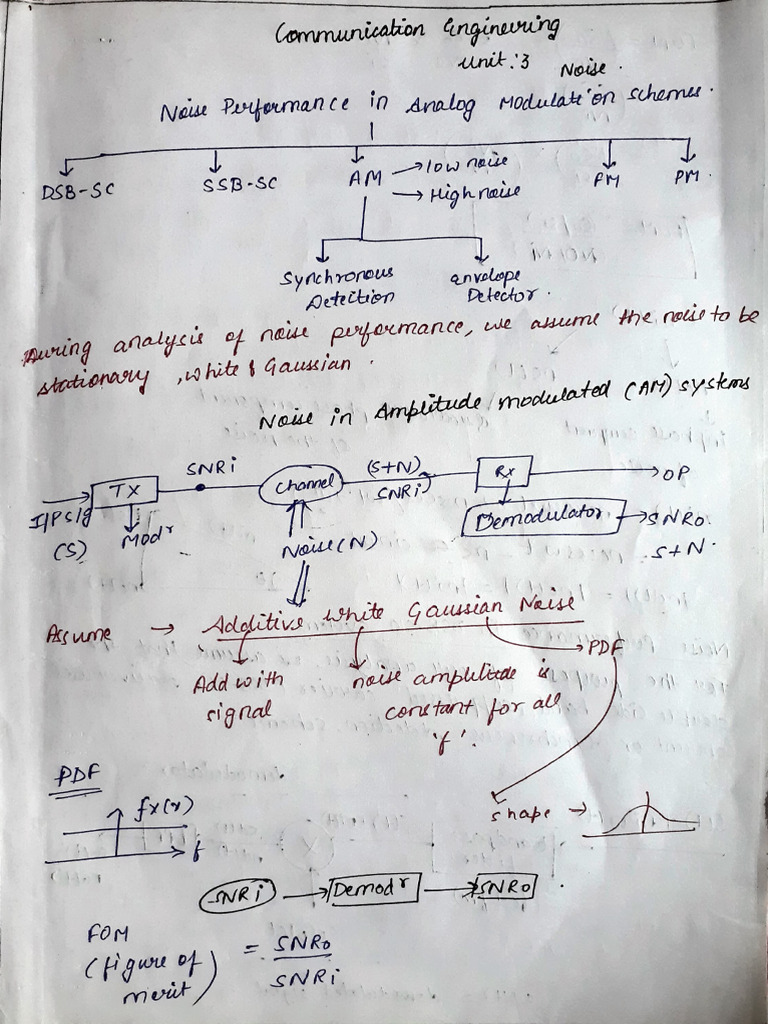 Communication Engineering
Unit:3 Noise.
Noise Performance in Analog Modulation Schemes.
DSB-SC SSB-SC AM → low noise FM PM.
→ High noise
Synchronous Detection
envelope Detector.
During analysis of noise performance, we assume the noise to be
stationary, white & Gaussian.
Noise in Amplitude modulated (AM) systems
I/P sig (S) TX SNRi Channel (S+N) SNRi Rx → OP
Modr Noise (N) Demodulator → SNRo.
S+N.
Assume → Additive White Gaussian Noise
→ PDF
Add with signal
noise amplitude is
constant for all
'f'.
PDF
fx(x)
f
shape →
SNRi → Demodr → SNRo.
FOM
(figure of merit) = SNRo / SNRi